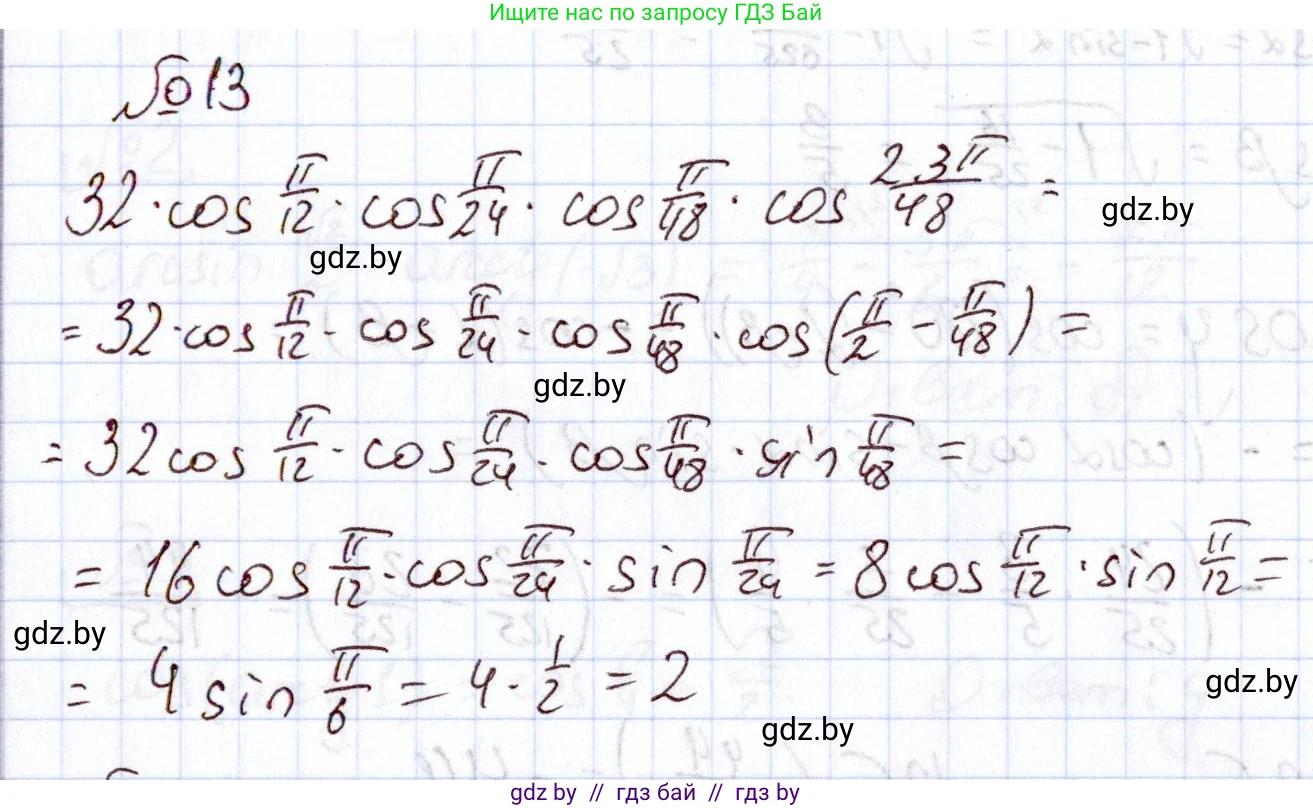 Ищите нас по запросу ГДЗ Бай
№13
32·cos π/12 · cos π/24 · cos π/48 · cos 23π/48 =
gdz.by
gdz.by
= 32·cos π/12 · cos π/24 · cos π/48 · cos(π/2 - π/48) =
gdz.by
= 32 cos π/12 · cos π/24 · cos π/48 · sin π/48 =
= 16 cos π/12 · cos π/24 · sin π/24 = 8 cos π/12 · sin π/12 =
gdz.by
= 4 sin π/6 = 4 · 1/2 = 2
gdz.by
gdz.by
gdz.by // гдз бай // гдз by